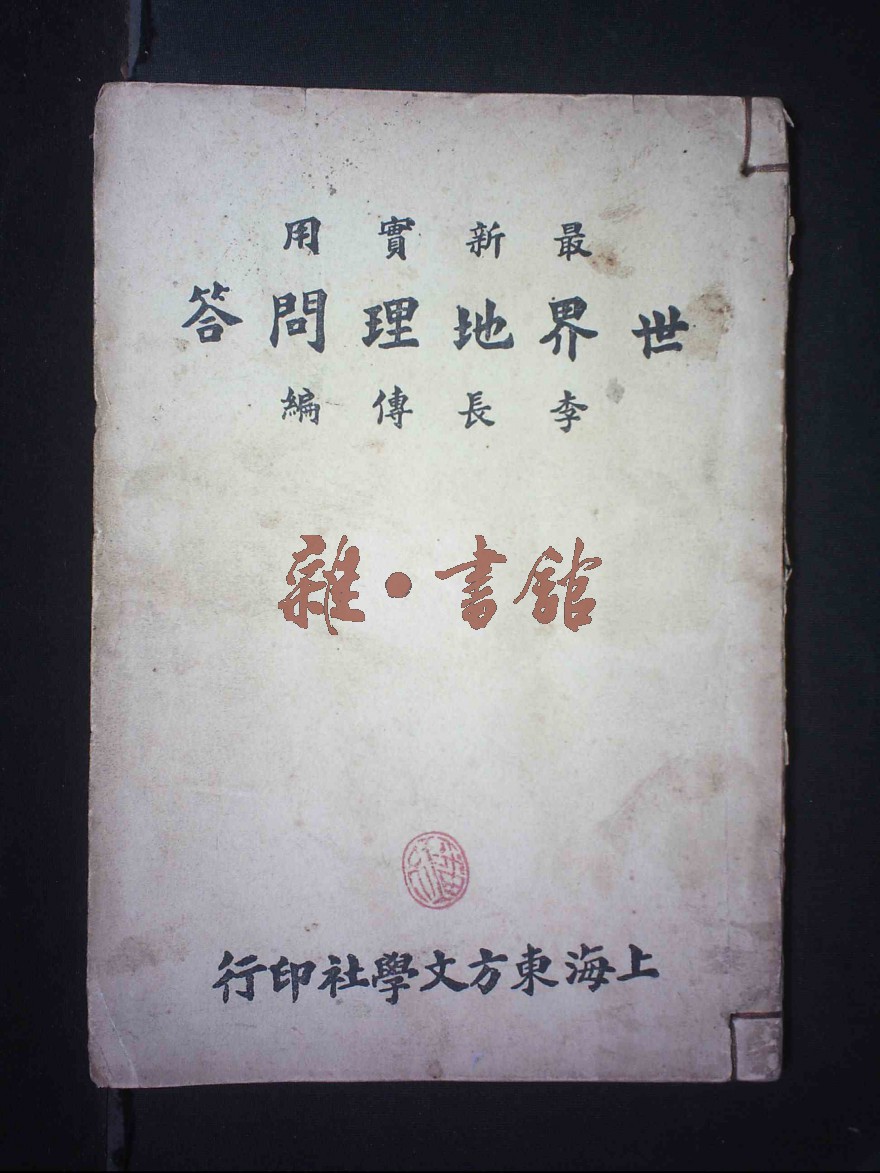 最新實用
世界地理問答
李長傳編
雜·書館
上海東方文學社印行